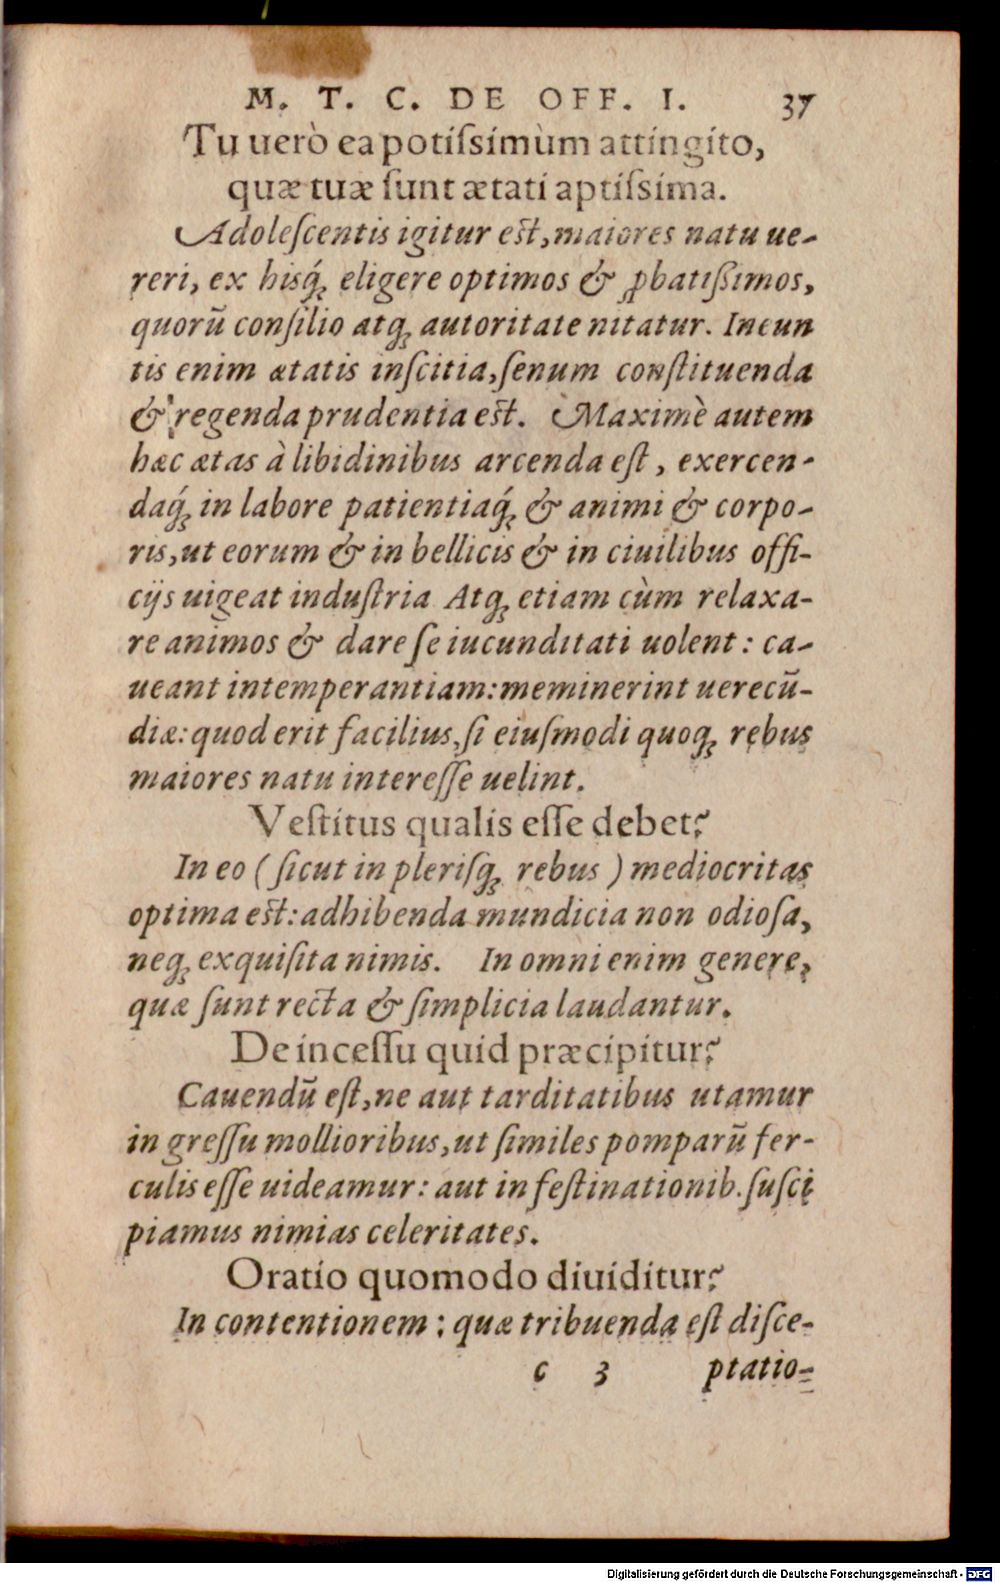 M. T. C. DE OFF. I. 37
Tu uerò ea potiſsimùm attingito,
quæ tuæ ſunt ætati aptiſsima.
Adoleſcentis igitur eſt, maiores natu ue-
reri, ex hisq́ꝫ eligere optimos & ꝓbatiſsimos,
quorũ conſilio atqꝫ autoritate nitatur. Ineun
tis enim ætatis inſcitia, ſenum conſtituenda
& regenda prudentia eſt. Maximè autem
hæc ætas à libidinibus arcenda eſt, exercen-
daq́ꝫ in labore patientiaq́ꝫ & animi & corpo-
ris, ut eorum & in bellicis & in ciuilibus offi-
cijs uigeat induſtria Atqꝫ etiam cùm relaxa-
re animos & dare ſe iucunditati uolent: ca-
ueant intemperantiam: meminerint uerecũ-
diæ: quod erit facilius, ſi eiuſmodi quoqꝫ rebus
maiores natu intereſſe uelint.
Veſtitus qualis eſſe debet?
In eo (ſicut in pleriſqꝫ rebus) mediocritas
optima eſt: adhibenda mundicia non odioſa,
neqꝫ exquiſita nimis. In omni enim genere,
quæ ſunt recta & ſimplicia laudantur.
De inceſſu quid præcipitur?
Cauendũ eſt, ne aut tarditatibus utamur
in greſſu mollioribus, ut ſimiles pomparũ fer-
culis eſſe uideamur: aut in feſtinationib. ſuſci
piamus nimias celeritates.
Oratio quomodo diuiditur?
In contentionem: quæ tribuenda eſt diſce-
c 3 ptatio-
Digitalisierung gefördert durch die Deutsche Forschungsgemeinschaft - DFG